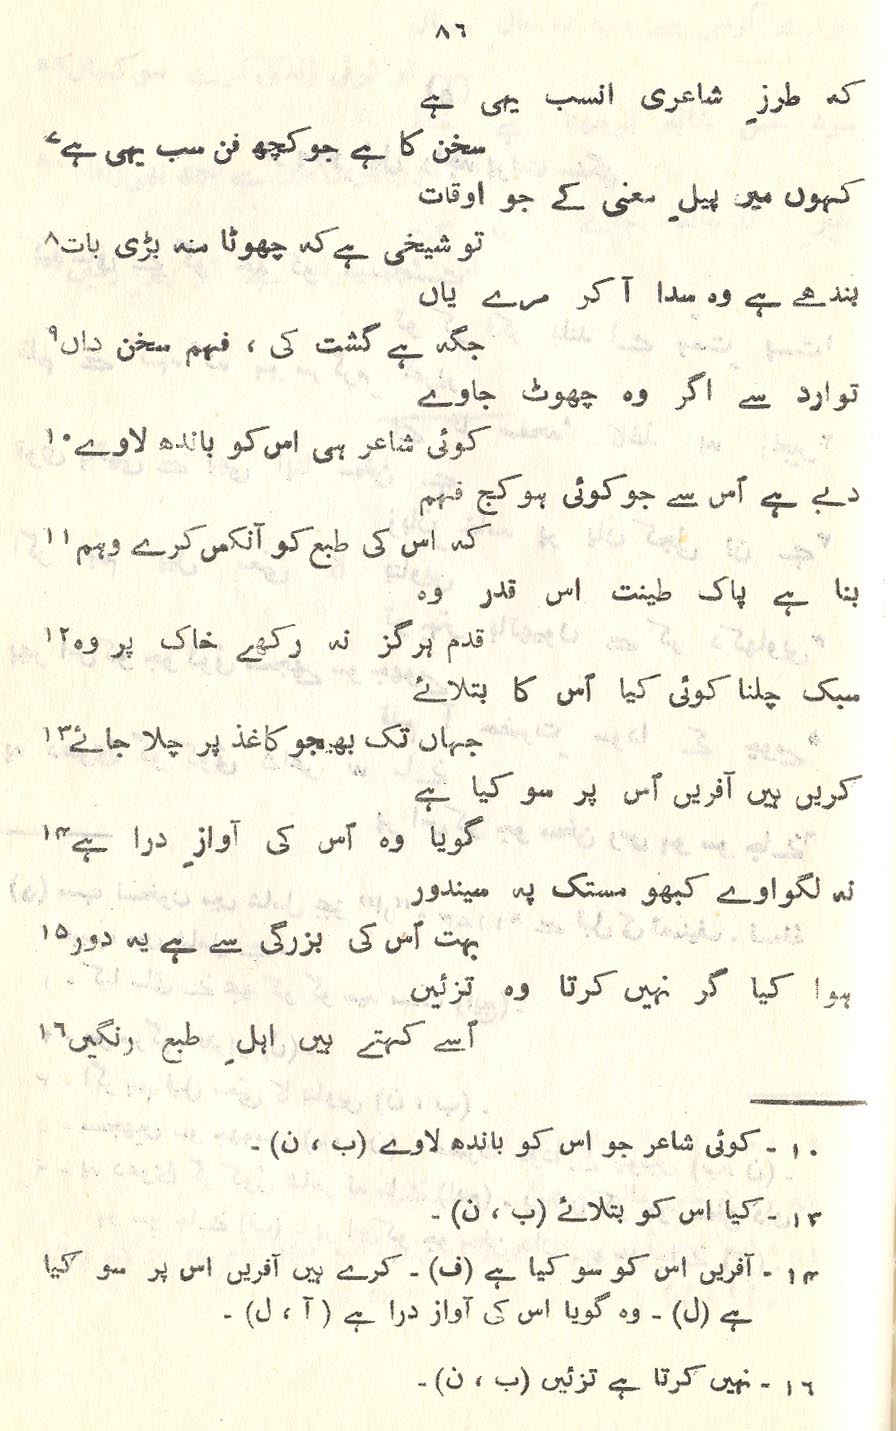 ۸۶
کہ طرزِ شاعری انسب یہی ہے
سخن کا ہے جو کچھ فن سب یہی ہے۷
کہوں میں پیلِ معنی کے جو اوقات
تو شیخی ہے کہ چھوٹا منہ بڑی بات۸
بندھے ہے وہ سدا آ کر مرے یاں
جگہ ہے گشت کی ، فہم سخن داں۹
توارد سے اگر وہ چھوٹ جاوے
کوئی شاعر ہی اس کو باندھ لاوے۱۰
دبے ہے اُس سے جو کوئی ہو کج فہم
کہ اس کی طبع کو آنکس کرے وہم۱۱
بنا ہے پاک طینت اس قدر وہ
قدم ہرگز نہ رکھے خاک پر وہ۱۲
سبک چلنا کوئی کیا اُس کا بتلائے
جہاں تک بھیجو کاغذ پر چلا جائے۱۳
کریں ہیں آفریں اُس پر سو کیا ہے
گویا وہ اُس کی آوازِ درا ہے۱۴
نہ لگواوے کبھو مستک پہ سیندور
بہت اُس کی بزرگی سے ہے یہ دور۱۵
ہوا کیا گر نہیں کرتا وہ تزئین
اُسے کہتے ہیں اہلِ طبع رنگیں۱۶
۱۰ - کوئی شاعر جو اس کو باندھ لاوے (ب ، ن) -
۱۳ - کیا اس کو بتلائے (ب ، ن) -
۱۴ - آفریں اس کو سو کیا ہے (ف) - کرے ہیں آفریں اس پر سو کیا
ہے (ل) - وہ گویا اس کی آواز درا ہے (آ ، ل) -
۱۶ - نہیں کرتا ہے تزئیں (ب ، ن) -